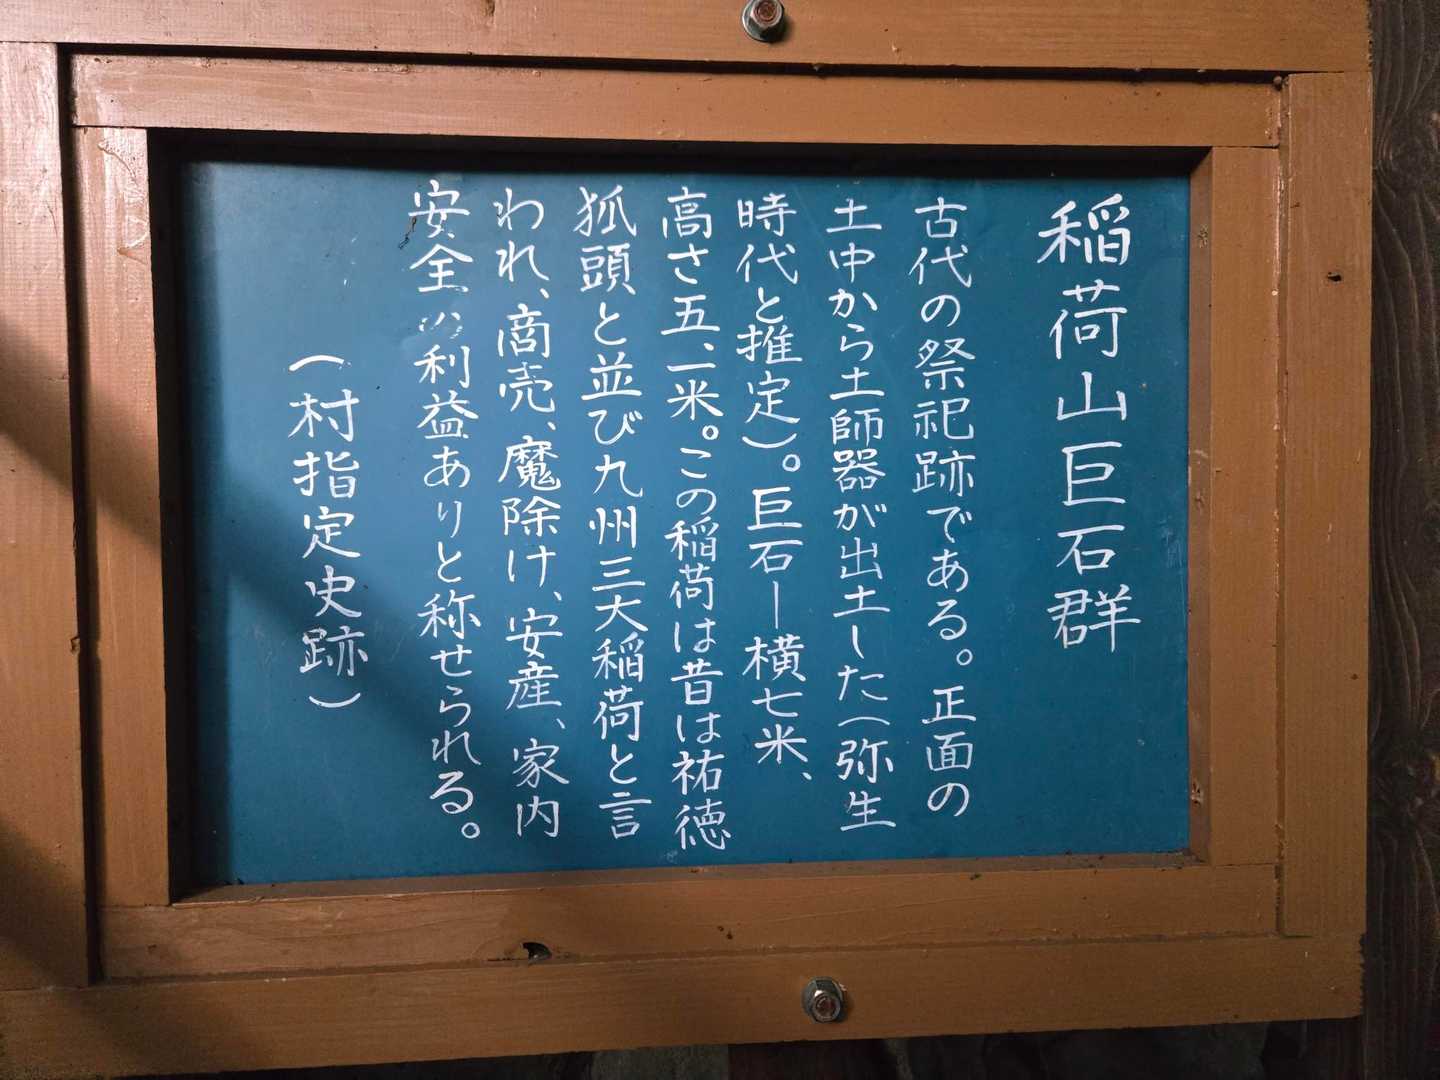 稲荷山巨石群
古代の祭祀跡である。正面の
土中から土師器が出土した(弥生
時代と推定)。巨石ー横七米、
高さ五、一米。この稲荷は昔は祐徳
狐頭と並び九州三大稲荷と言
われ、商売、魔除け、安産、家内
安全の利益ありと称せられる。
(村指定史跡)